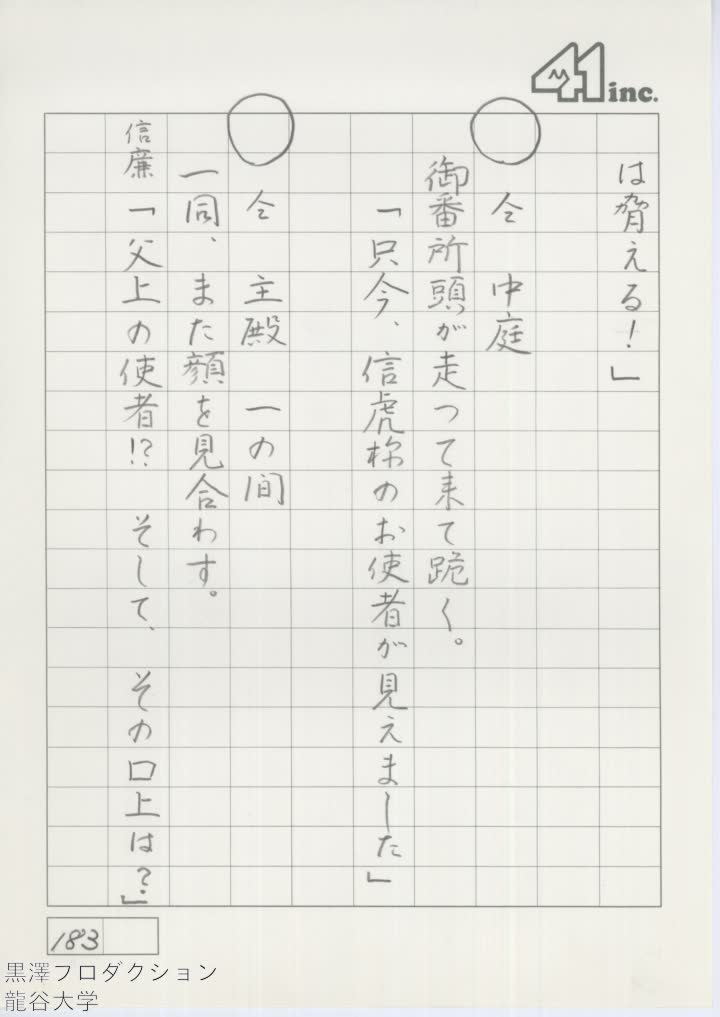 41 inc.
は脅える！」
◯ 仝 中庭
御番所頭が走つて来て跪く。
「只今、信虎様のお使者が見えました」
◯ 仝 主殿 一の間
一同、また顔を見合わす。
信廉「父上の使者!? そして、その口上は？」
183
黒澤プロダクション
龍谷大学